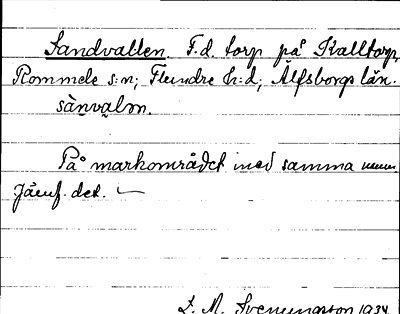 Sandvallen. F.d. torp på Kalltorp,
Rommele s:n; Flundre h:d; Älfsborgs län.
sànvalɷn.
På markområdet med samma namn.
Jämf. det.
L. M. Svenungsson 1934.